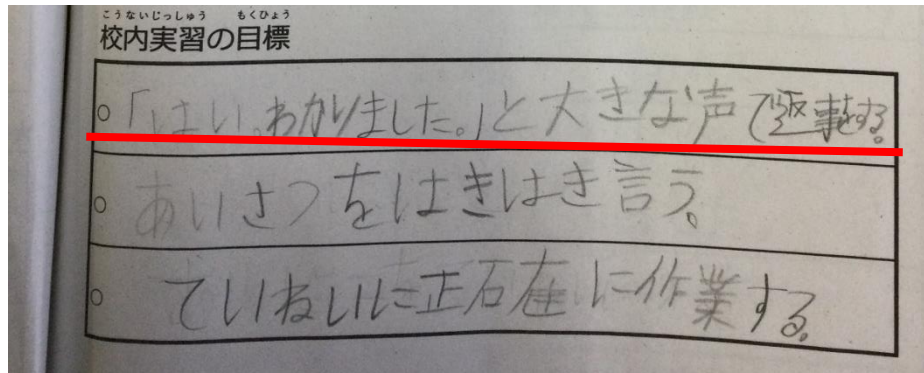 こうないじっしゅう もくひょう
校内実習の目標
○「はい。わかりました。」と大きな声で返事をする。
○ あいさつをはきはき言う。
○ ていねいに正確に作業する。